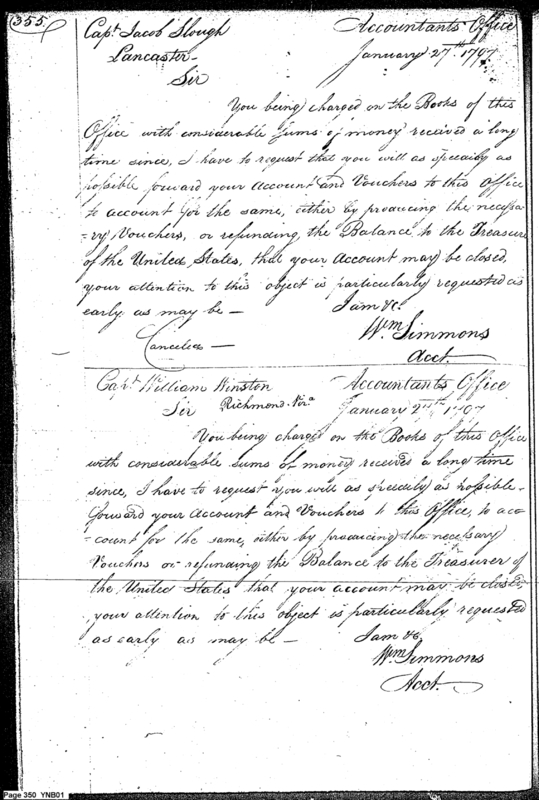 355
Capt. Jacob Slough Accountants Office
Lancaster— January 27th 1797.
Sir
You being charged on the Books of this
Office with considerable sums of money received a long
time since, I have to request that you will as speedily as
possible forward your Account and Vouchers to this Office
to account for the same, either by producing the necessa-
-ry Vouchers, or refunding the Balance to the Treasurer
of the United States, that your Account may be closed,
your attention to this object is particularly requested as
early as may be — I am &c.
Cancelled — Wm Simmons
Acct.
Capt. William Winston Accountants Office
Sir Richmond. Vira January 27th 1797
You being charged on the Books of this Office
with considerable sums of money received a long time
since, I have to request you will as speedily as possible
forward your Account and Vouchers to this Office, to acc-
-count for the same, either by producing the necessary
Vouchers or refunding the Balance to the Treasurer of
the United States that your account may be closed,
your attention to this object is particularly requested
as early as may be — I am &c
Wm Simmons
Acct.
Page 350 YNB01